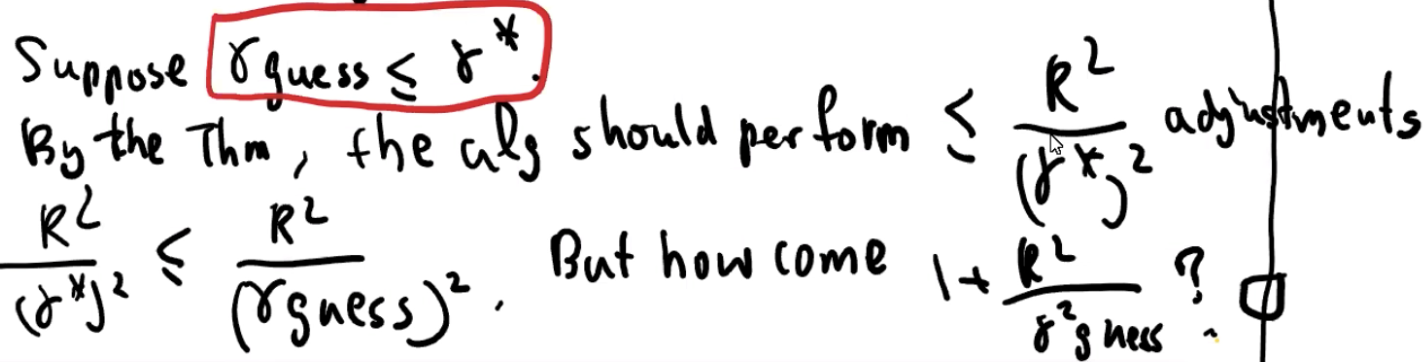 Suppose γguess ≤ γ*.
By the Thm, the alg should perform ≤ R²/(γ*)² adjustments
R²/(γ*)² ≤ R²/(γguess)². But how come 1+ R²/γ²guess ?